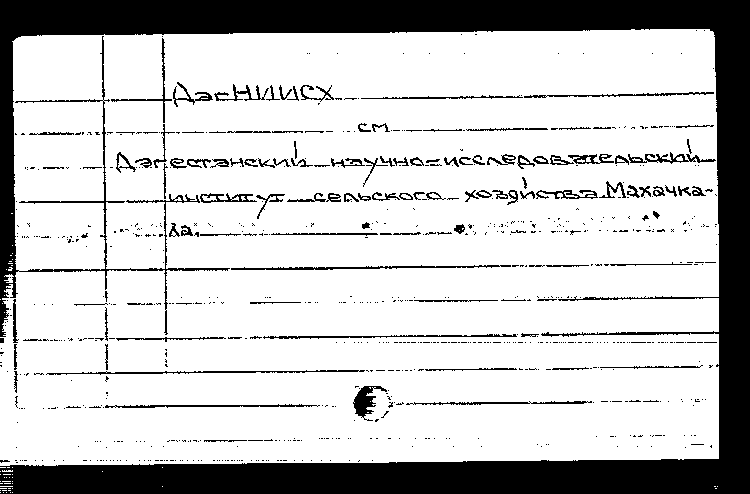 ДагНИИСХ
см
Дагестанский научно-исследовательский
институт сельского хозяйства Махачка-
ла.